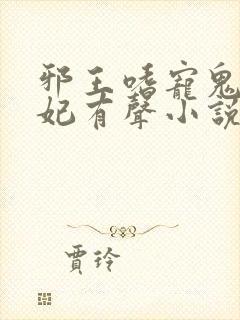 邪王嗜寵鬼
妃有聲小説
賈玲